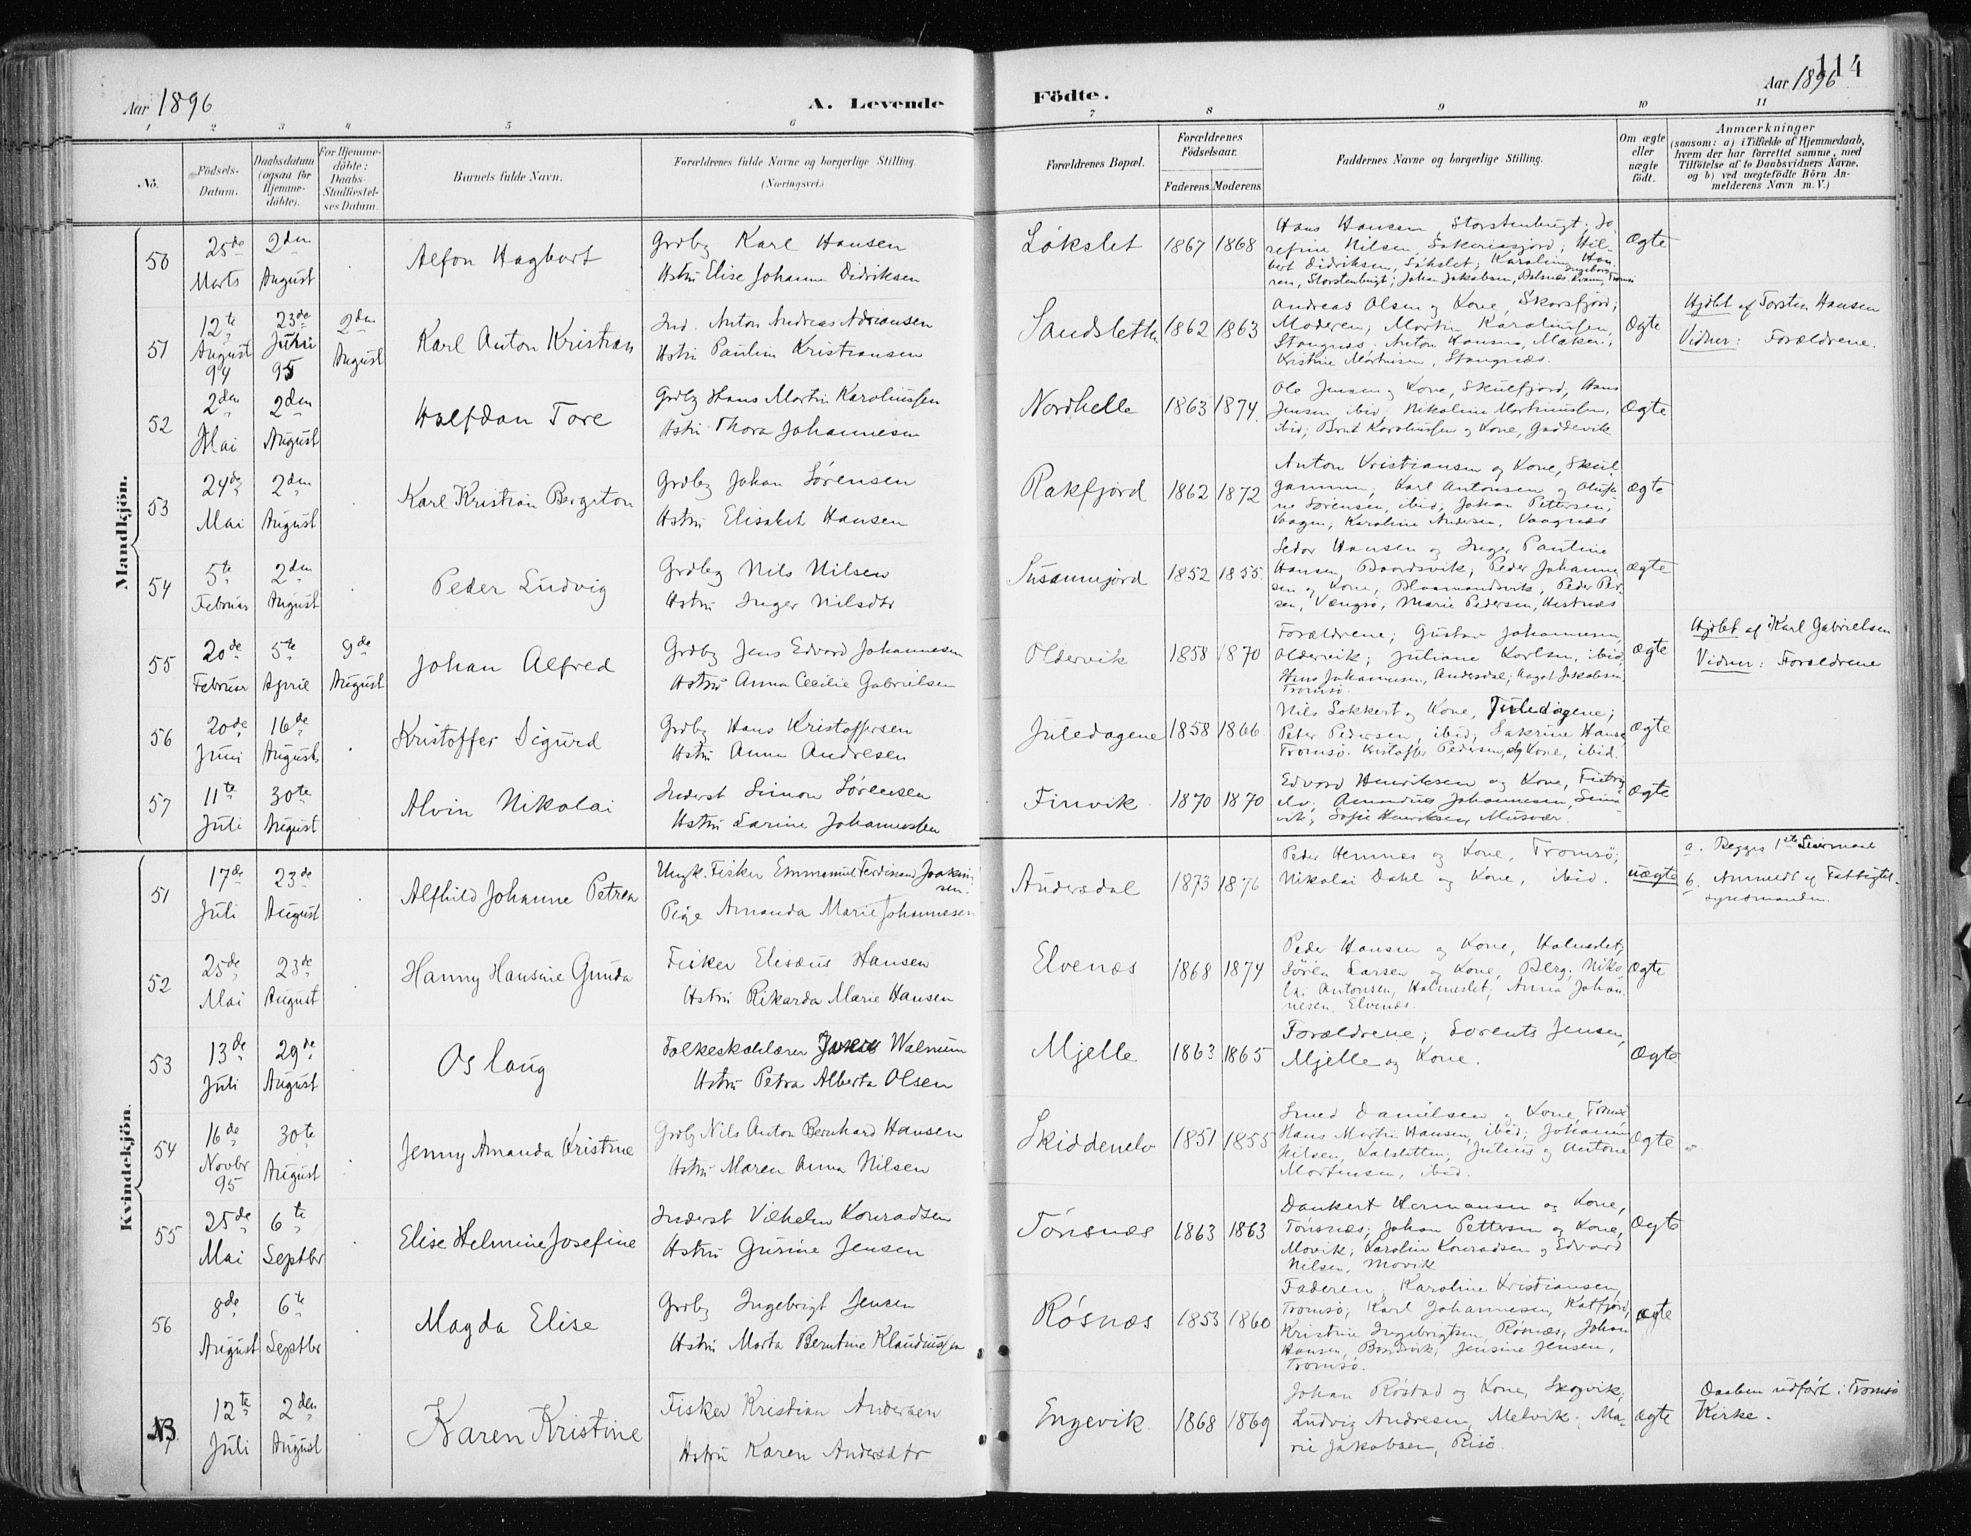 Aar 1896
A. Levende
Födte.
Aar 1896
114
1 2 3 4 5 6 7 8 9 10 11
No.
Födsels-Datum.
Daabsdatum (ogsaa for Hjemmedöbte).
For Hjemmedöbte: Daabs-Stadfæstelses Datum.
Barnets fulde Navn.
Forældrenes fulde Navne og borgerlige Stilling. (Næringsvei.)
Forældrenes Bopæl.
Forældrenes Födselsaar.
Faderens. Moderens.
Faddernes Navne og borgerlige Stilling.
Om ægte eller uægte födt.
Anmærkninger
(saasom: a) i Tilfælde af Hjemmedaab, hvem der har forrettet samme, med Tilföielse af to Daabsvidners Navne, og b) ved uægtefödte Börn Anmelderens Navn m. V.)
Mandkjön.
50
25de Marts
2den August
Alfon Hagbart
Grdbg Karl Hansen
Hstru Elise Johanna Didriksen
Lökslet
1867 1868
Hans Hansen, Storstenbugt; Jo-
sefine Nilsen, Sakariasjord; Hil-
bert Didriksen, Lökslet; Karoline Han-
sen, Storstenbugt; Johan Jakobsen,
ægte
51
12te August 94
23de Juni 95
2den August
Karl Anton Kristian
Ind. Anton Andreas Adriansen
Hstru Pauline Kristiansen
1862 1863
Andreas Olsen og Kone, Skorsfjord;
Moderen; Martin Karoliussen,
Stangnæs; Anton Hansen,
Kristine Martinsen, Stangnæs.
ægte
Hjdbt af Torsten Hansen
Vidner: Forældrene.
52
2den Mai
2den August
Halfdan Tore
Grdbg Hans Martin Karoliussen
Hstru Thora Johannesen
Nordhelle
1863 1874
Ole Jensen og Kone, Skulsfjord; Hans
Jensen ibid; Nikoline Martinussen,
ibid; Karoliussen og Kone,
ægte
53
24de Mai
2den August
Karl Kristian Bergiton
Grdbg Johan Sörensen
Hstru Elisabet Hansen
Rakfjord
1862 1872
Anton Kristiansen og Kone, Skul-
gammen; Karl Antonsen og
Sörensen, ibid; Johan Pettersen,
Vaagen; Karoline Andersen, Vaagnæs
ægte
54
5te Februar
2den August
Peder Ludvig
Grdbg Nils Nilsen
Hstru Inger Nilsdtr
1852 1855
Hansen og Inger Pauline
Hansen, Baardsvik; Peder Johanne-
sen og Kone, Blaamandsvik; Peder Peder-
sen, Vængsö, Marie Pedersen,
ægte
55
20de Februar
5te April
9de August
Johan Alfred
Grdbg Jens Edvard Johannesen
Hstru Anna Cecilie Gabrielsen
Oldervik
1858 1870
Forældrene; Gustav Johannesen,
Oldervik; Juliane Karlsen, ibid,
Hans Johannesen, Andersdal; Aagot Jakobsen,
Tromsö.
ægte
Hjdbt af Karl Gabrielsen
Vidner: Forældrene
56
20de Juni
16de August
Kristoffer Sigurd
Grdbg Hans Kristoffersen
Hstru Anna Andresen
Juledagene
1858 1866
Nils Lokkert og Kone, Juledagene;
Peter Pedersen, ibid; Sakrine Hansen,
Tromsö. Kristoffer Pedersen og Kone, ibid.
ægte
57
11te Juli
30te August
Alvin Nikolai
Inderst Simon Sörensen
Hstru Larine Johannessen
Finvik
1870 1870
Edvard Henriksen og Kone,
Amandus Johannesen,
vik; Sofie Henriksen, Musvær.
ægte
Kvindekjön.
51
17de Juli
23de August
Alfhild Johanne Petrea
Ungk. Fisker Emmanuel Ferdinand Joakimsen
Pige Amanda Marie Johannesen
Andersdal
1873 1876
Peder Hemnes og Kone, Tromsö;
Nikolai Dahl og Kone, ibid.
uægte
a. Begges 1ste Leiermaal
b. Anmeldt af Fattigtil-
synsmanden.
52
25de Mai
23de August
Hanny Hansine Gunda
Fisker Elisæus Hansen
Hstru Rikarda Marie Hansen
Elvenæs
1868 1874
Peder Hansen og Kone, Holmeslet;
Sören Larsen og Kone, Berg; Niko-
lai Antonsen, Holmeslet; Anna Johan-
nesen, Elvenæs.
ægte
53
13de Juli
29de August
Oslaug
Folkeskolelærer Walnum
Hstru Petra Alberta Olsen
Mjelle
1863 1865
Forældrene; Lorents Jensen,
Mjelle og Kone.
ægte
54
16de Novbr 95
30te August
Jenny Amanda Kristine
Grdbg Nils Anton Bernhard Hansen
Hstru Maren Anna Nilsen
Skiddenelv
1851 1855
Smed Danielsen og Kone, Tromsö
Hans Martin Hansen, ibid; Johanne
Nilsen, Kalsletten; Julius og Antone
Mortensen, ibid.
ægte
55
25de Mai
6te Septbr
Elise Helmine Josefine
Inderst Vilhelm Konradsen
Hstru Gurine Jensen
Tönsnæs
1863 1863
Dankert Hermansen og Kone,
Tönsnæs; Johan Pettersen og Kone,
Movik; Karoline Konradsen og Edvard
Nilsen, Movik
ægte
56
8de August
6te Septbr
Magda Elise
Grdbg Ingebrigt Jensen
Hstru Marta Berntine Klaudiussen
Rösnæs
1853 1860
Faderen; Karoline Kristiansen,
Tromsö; Karl Johannesen, Katfjord,
Kristine Ingebrigtsen, Rösnæs, Johan
Hansen, Jensine Jensen,
Tromsö.
ægte
12te Juli
2den August
Karen Kristine
Fisker Kristian Andersen
Hstru Karen Andersdtr
Engevik
1868 1869
Johan Röstad og Kone, Skogvik;
Ludvig Andresen, Melvik; Ma-
rie Jakobsen, Risö.
ægte
Daaben udført i Tromsö
Kirke.